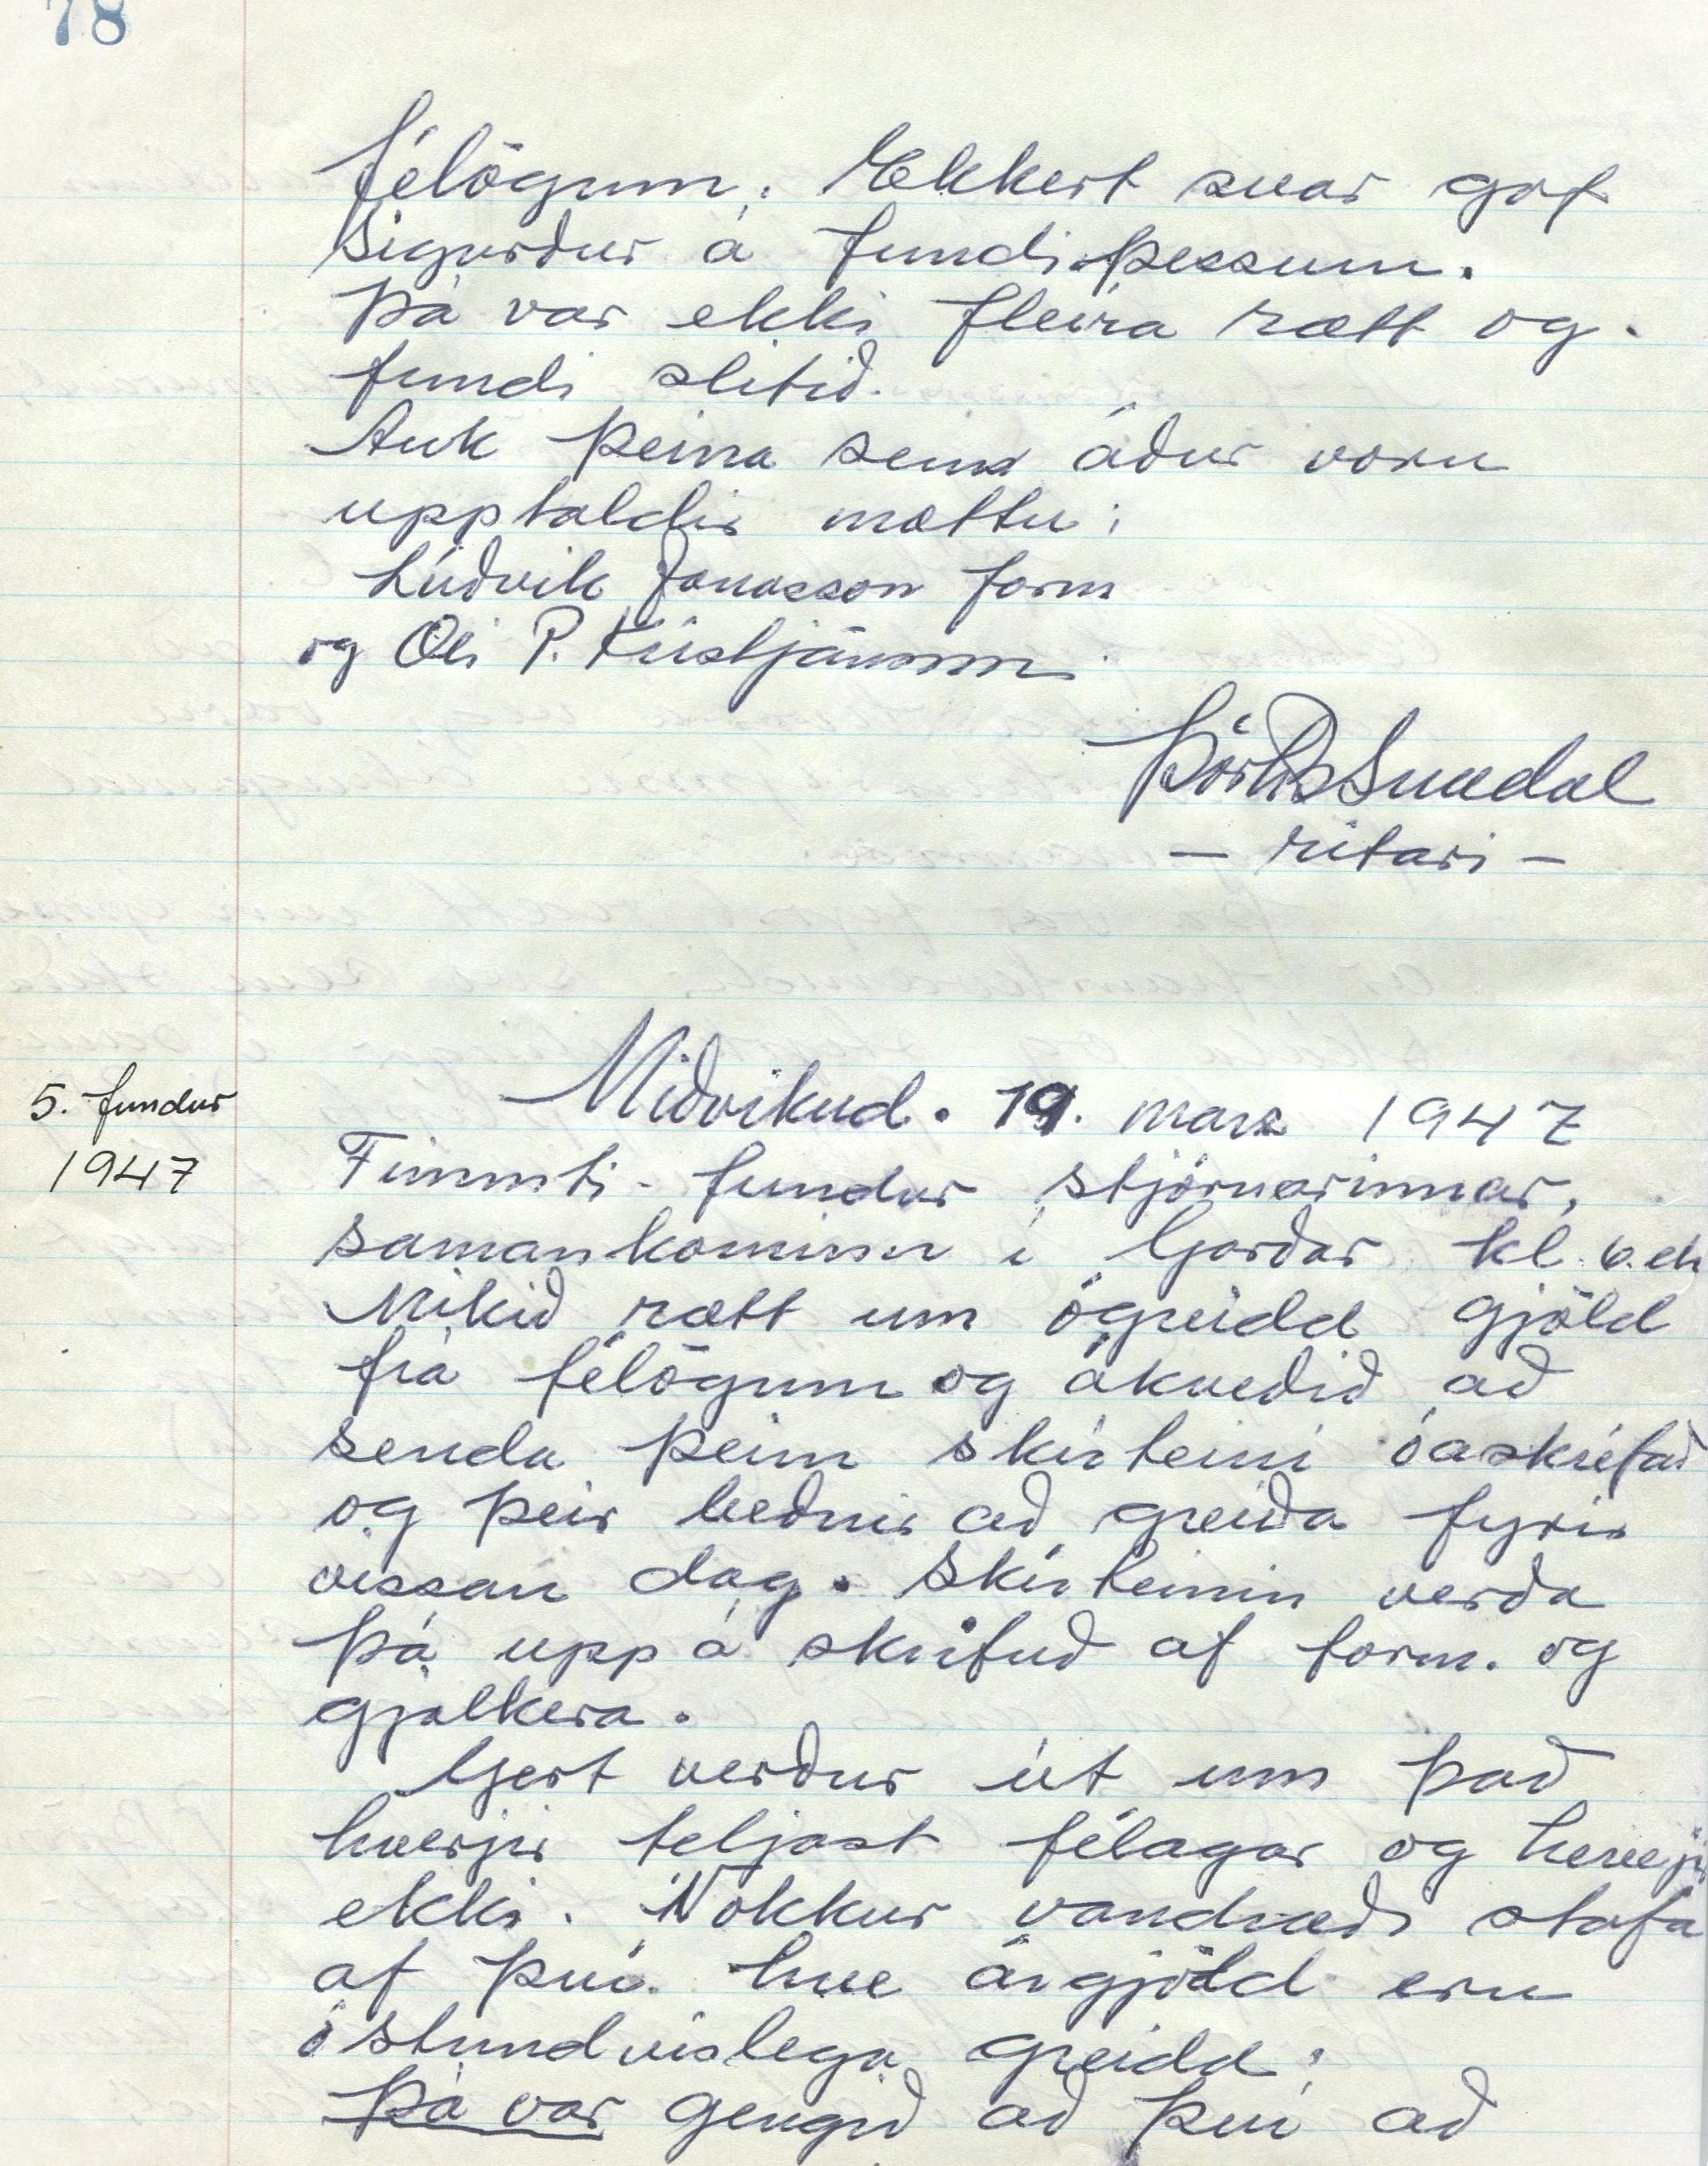 78
félögum. Ekkert svar gaf
Sigurður á fundi þessum.
Þá var ekki fleira rætt og
fundi slitið.
Auk þeirra sem áður voru
upptaldir mættu:
Lúðvik Jónasson form
og Óli P. Kristjánsson
Snædal
- ritari -
5. fundur
1947
Miðvikud. 19. marz 1947
Fimmti - fundur stjórnarinnar,
samankominn í Garðar kl. 6. eh
Mikið rætt um ógreidd gjöld
frá félögum og ákveðið að
senda þeim skírteini óáskrifað
og þeir beðnir að greiða fyrir
vissan dag. Skírteinin verða
þá upp á skrifuð af form. og
gjalkera.
Gert verður út um það
hverjir teljast félagar og hverjir
ekki. Nokkur vandræði stafa
af því hve árgjöld eru
óstundvíslega greidd.
Þá var gengið að því að